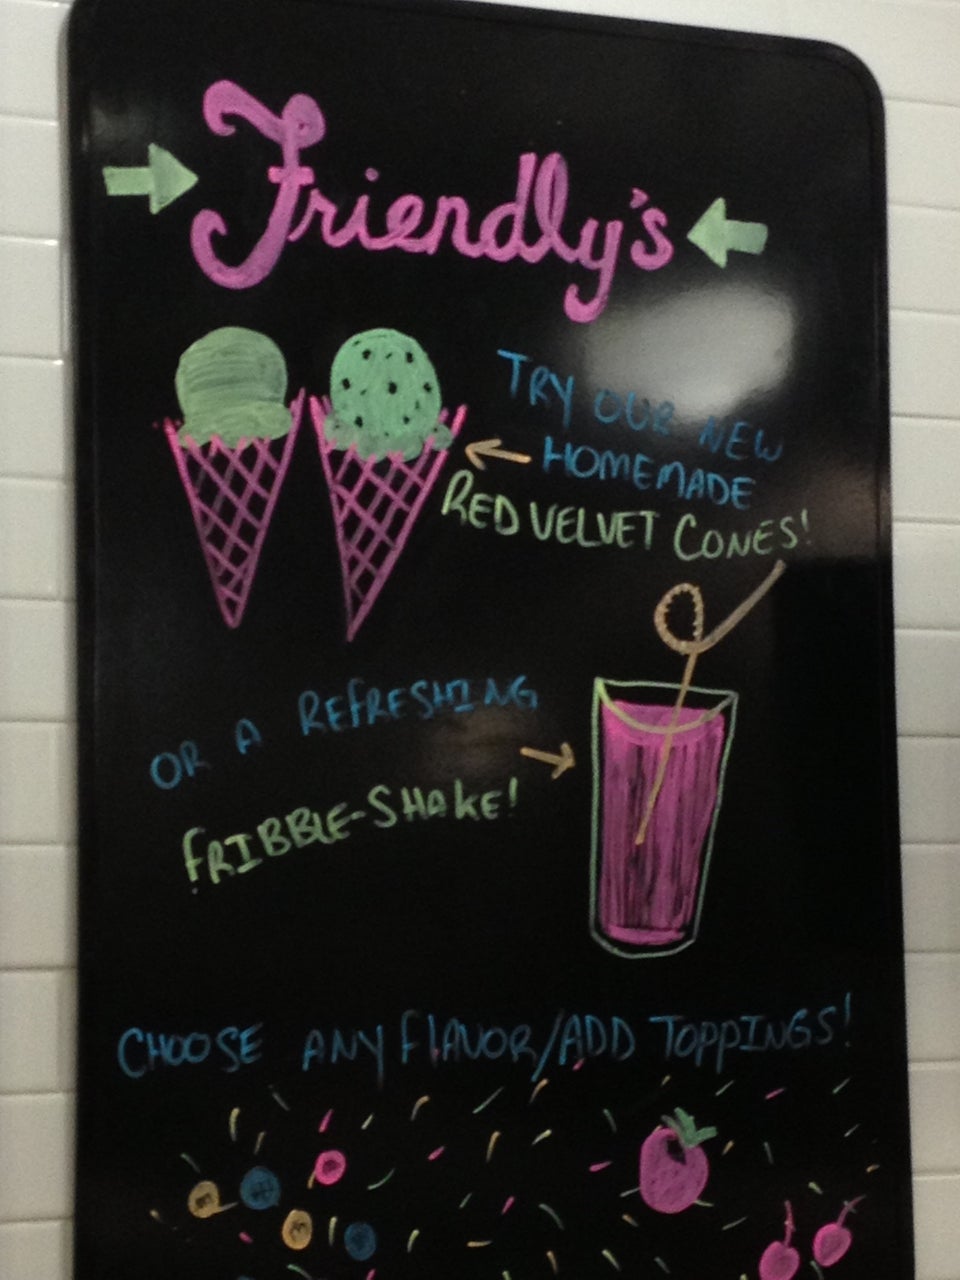 Friendly's
TRY OUR NEW
HOMEMADE
RED VELVET CONES!
OR A REFRESHING
FRIBBLE-SHAKE!
CHOOSE ANY FLAVOR/ADD TOPPINGS!